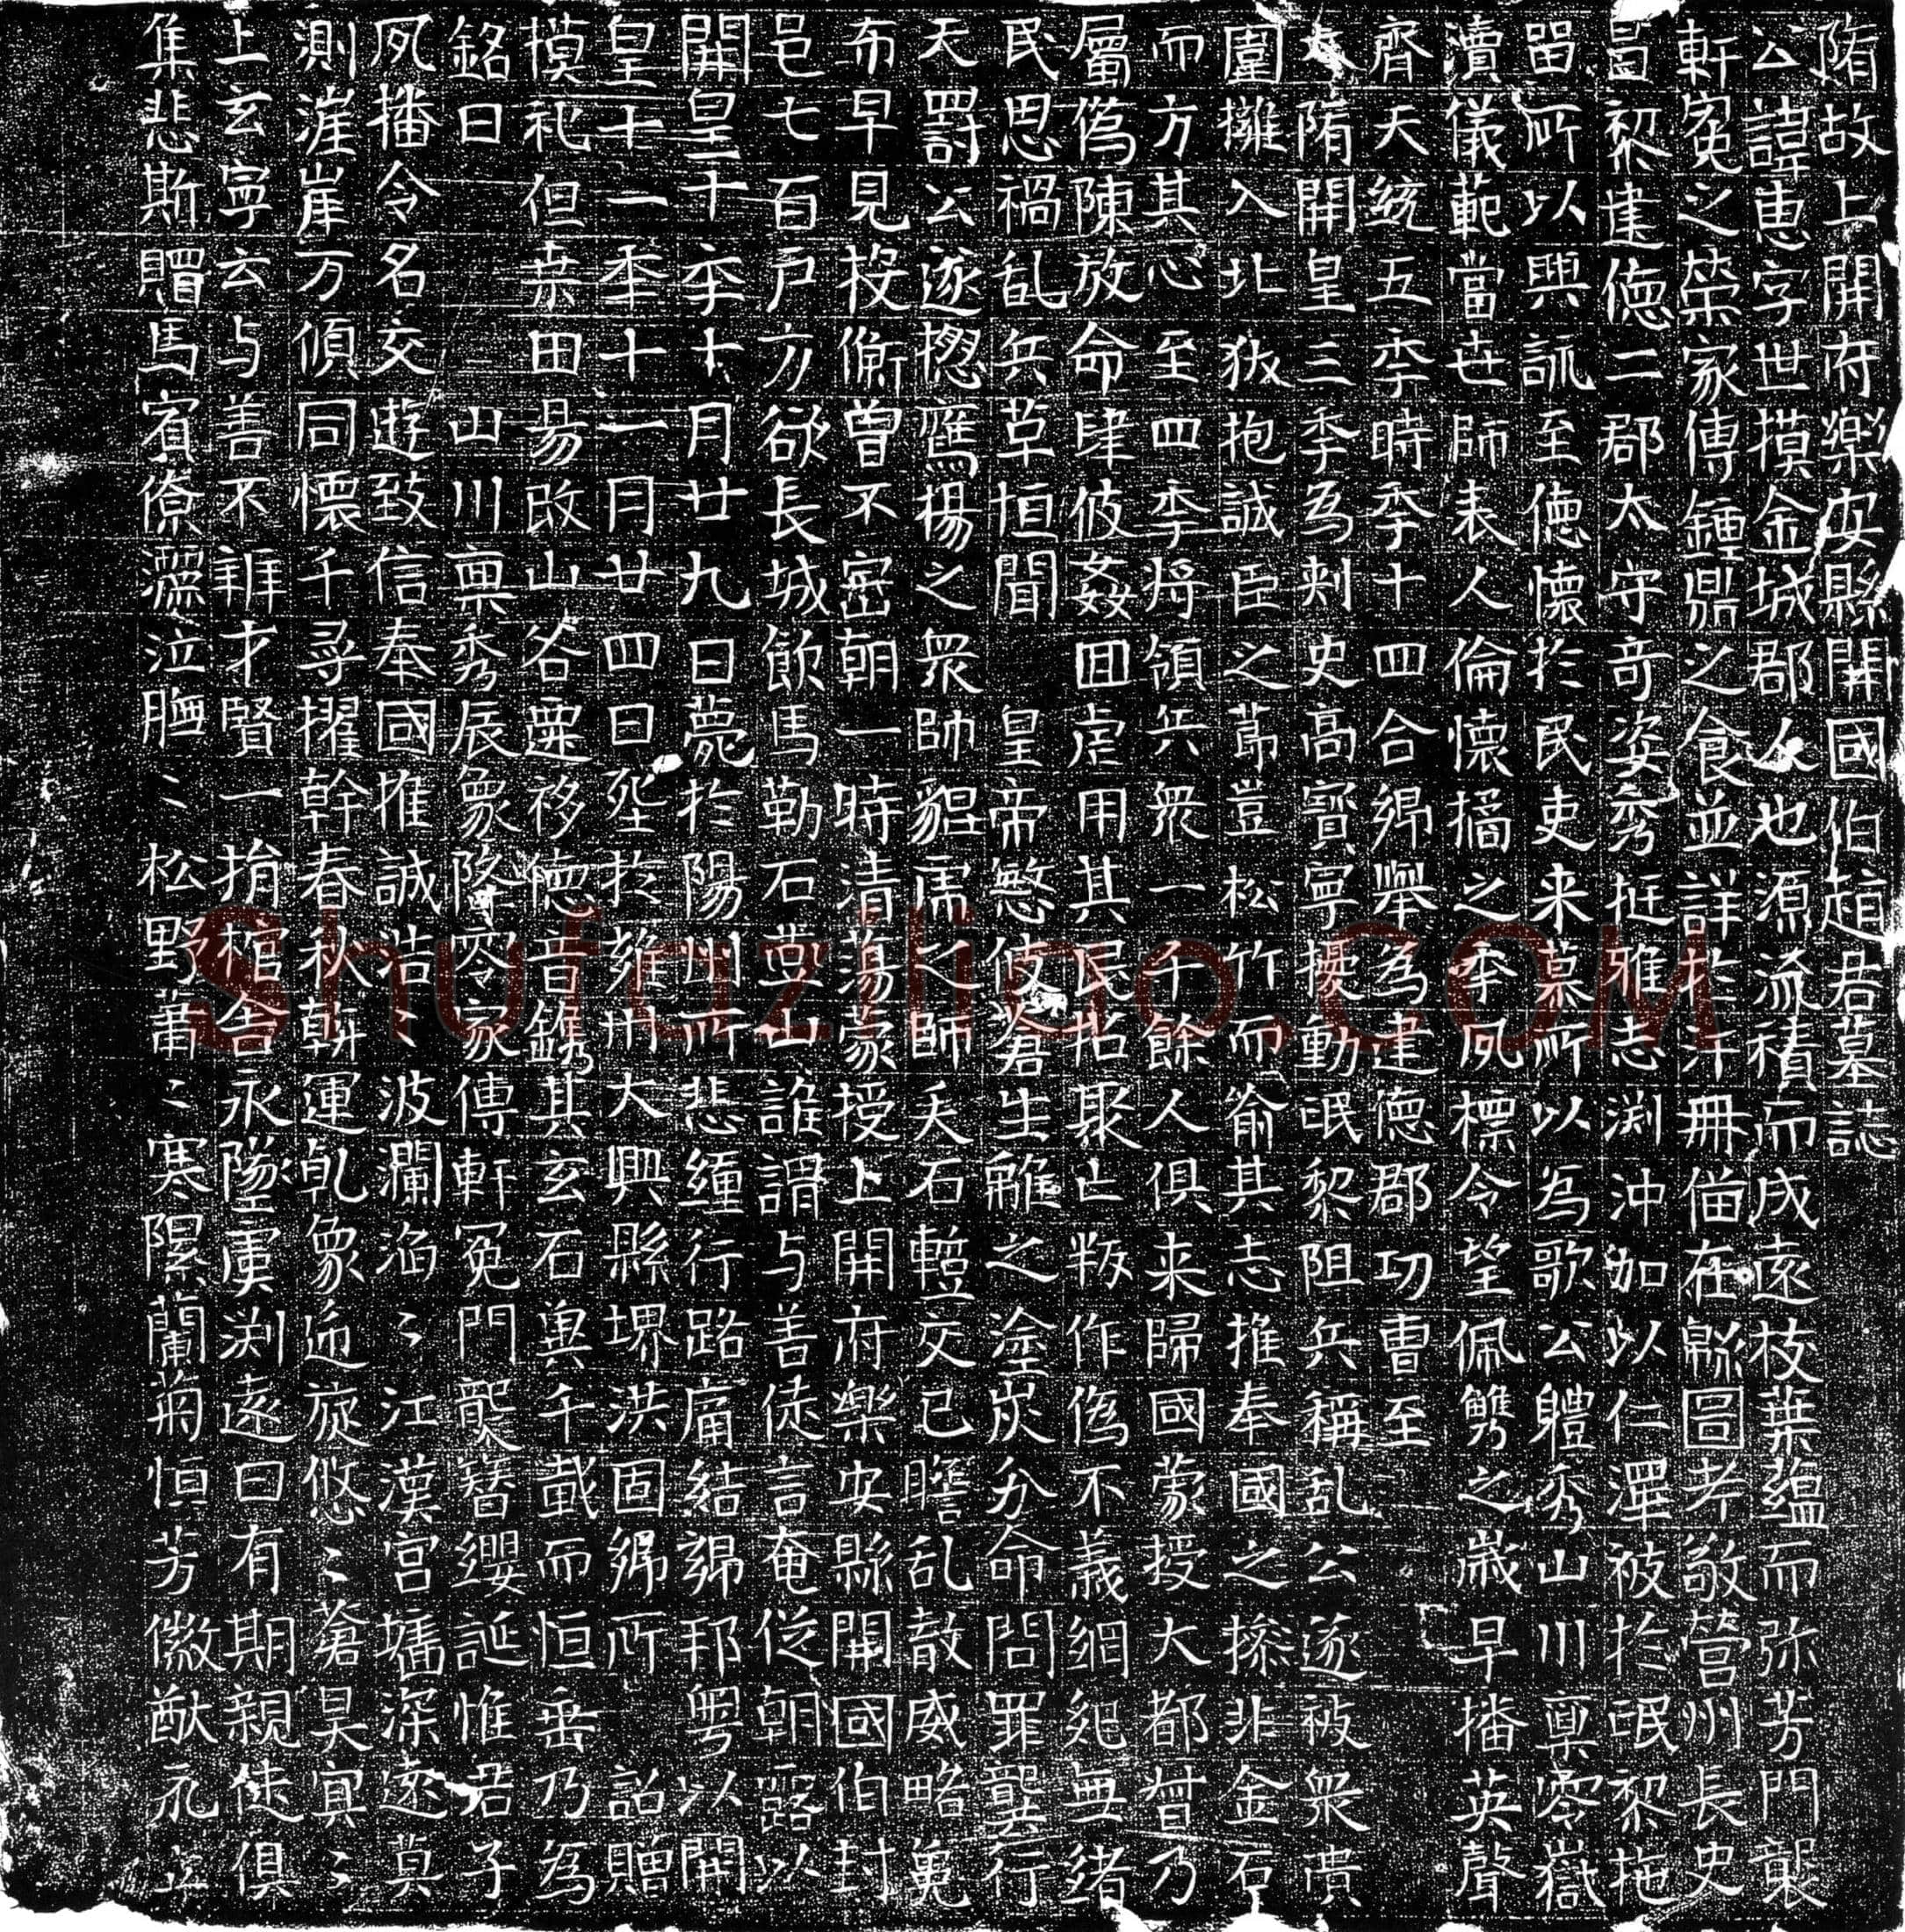 隋故上開府樂安縣開國伯趙君墓誌
公諱惠字世摸金城郡人也源流積而成遠枝葉蘊而弥芳門襲
軒冕之榮家傳鍾鼎之食並詳於汗冊備在縣圖考敬營州長史
昌黎建德二郡太守奇姿秀挺雅志渕沖加以仁澤被於氓黎地
留所以興詠至德懷於民吏来慕所以為歌公體秀山川稟零嶽
瀆儀範當世師表人倫懷橘之年夙標令望佩觽之歲早播英聲
齊天統五年時年十四合歸舉為建德郡功曹至
大隋開皇三季為刾史高寶寧擾動氓黎阻兵稱乱公遂被衆責
圍攤入北狄抱誠臣之莭豈松竹而喻其志推奉國之操非金石
而方其心至四季將領兵衆一千餘人俱来歸國蒙授大都督乃
屬偽陳放命肆彼姦囬虐用其民招聚亡叛作偽不義綱紀無緒
民思禍乱兵草恒聞皇帝愍彼蒼生離之塗炭分命問罪龔行
天罸公遂摠鷹揚之衆帥貔虎之師矢石蹔交已瞻乱散威略蔸
布早見授衡曽不宻朝一時清蕩蒙授上開府樂安縣開國伯封
邑七百戶方欲長城飲馬勒石燕山誰謂与善徒言奄從朝露以
開皇十年十月廿九日薨於陽州所悲纏行路痛結歸邦粤以開
皇十一年十一月廿四日㘸於雍州大興縣堺洪固鄉所詔贈
摸祀但桒田易改山谷粟移德音鐫其玄石與千載而恒垂乃為
銘曰山川稟秀辰象降零家傳軒冕門襲簪纓誕惟君子
夙播令名交遊致信奉國推誠浩〻波瀾滔〻江漢宮墻深遠莫
測涯岸万傾同懷千尋擢幹春秋斡運乹象逈旋悠〻蒼昊冥〻
上玄寧云与善不誰才賢一捐棺舍永墜虞渕遠日有期親徒俱
集悲斯賵馬賔僚灑泣膴〻松野蕭〻寒隰蘭菊恒芳徽猷永立